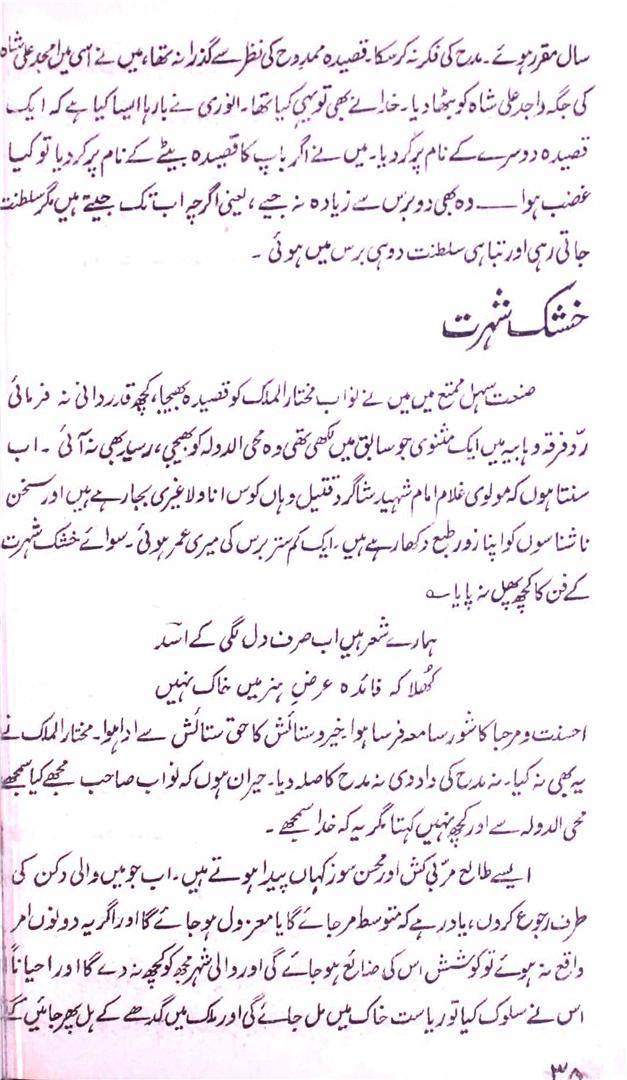 سال مقرر ہوئے۔ مدح کی فکر نہ کر سکا۔ قصیدہ ممدوح کی نظر سے گذرا نہ تھا، میں نے اسی میں امجد علی شاہ
کی جگہ واجد علی شاہ کو بٹھا دیا۔ خدا نے بھی تو یہی کیا تھا۔ انوری نے بارہا ایسا کیا ہے کہ ایک
قصیدہ دوسرے کے نام پر کر دیا۔ میں نے اگر باپ کا قصیدہ بیٹے کے نام پر کر دیا تو کیا
غضب ہوا — وہ بھی دو برس سے زیادہ نہ جیے، یعنی اگرچہ اب تک جیتے ہیں مگر سلطنت
جاتی رہی اور تباہی سلطنت دو ہی برس میں ہوئی۔
خشک شہرت
صنعت سہل ممتنع میں میں نے نواب مختار الملک کو قصیدہ بھیجا، کچھ قدردانی نہ فرمائی
ردِّ فرقہ وہابیہ میں ایک مثنوی جو سابق میں لکھی تھی وہ محی الدولہ کو بھیجی، رسید بھی نہ آئی۔ اب
سنتا ہوں کہ مولوی غلام امام شہید شاگرد قتیل وہاں کوس انا ولا غیری بجا رہے ہیں اور سخن
ناشناسوں کو اپنا زور طبع دکھا رہے ہیں۔ ایک کم ستر برس کی میری عمر ہوئی۔ سوائے خشک شہرت
کے فن کا کچھ پھل نہ پایا ؎
ہمارے شعر ہیں اب صرف دل لگی کے اسدؔ
کھُلا کہ فائدہ عرضِ ہنر میں خاک نہیں
احسنت و مرحبا کا شور سامعہ فرسا ہوا خیر و ستائش کا حق ستائش سے ادا ہوا۔ مختار الملک نے
یہ بھی نہ کیا۔ نہ مدح کی داد دی نہ مدح کا صلہ دیا۔ حیران ہوں کہ نواب صاحب مجھے کیا سمجھے
محی الدولہ سے اور کچھ نہیں کہتا مگر یہ کہ خدا سمجھے۔
ایسے طالع مربّی کش اور محسن سوز کہاں پیدا ہوتے ہیں۔ اب جو میں والی دکن کی
طرف رجوع کروں، یاد رہے کہ متوسط مر جائے گا یا معزول ہو جائے گا اور اگر یہ دونوں امر
واقع نہ ہوئے تو کوشش اس کی ضائع ہو جائے گی اور والی شہر مجھ کو کچھ نہ دے گا اور احیاناً
اس نے سلوک کیا تو ریاست خاک میں مل جائے گی اور ملک میں گدھے کے ہل پھر جائیں گے
۳۸